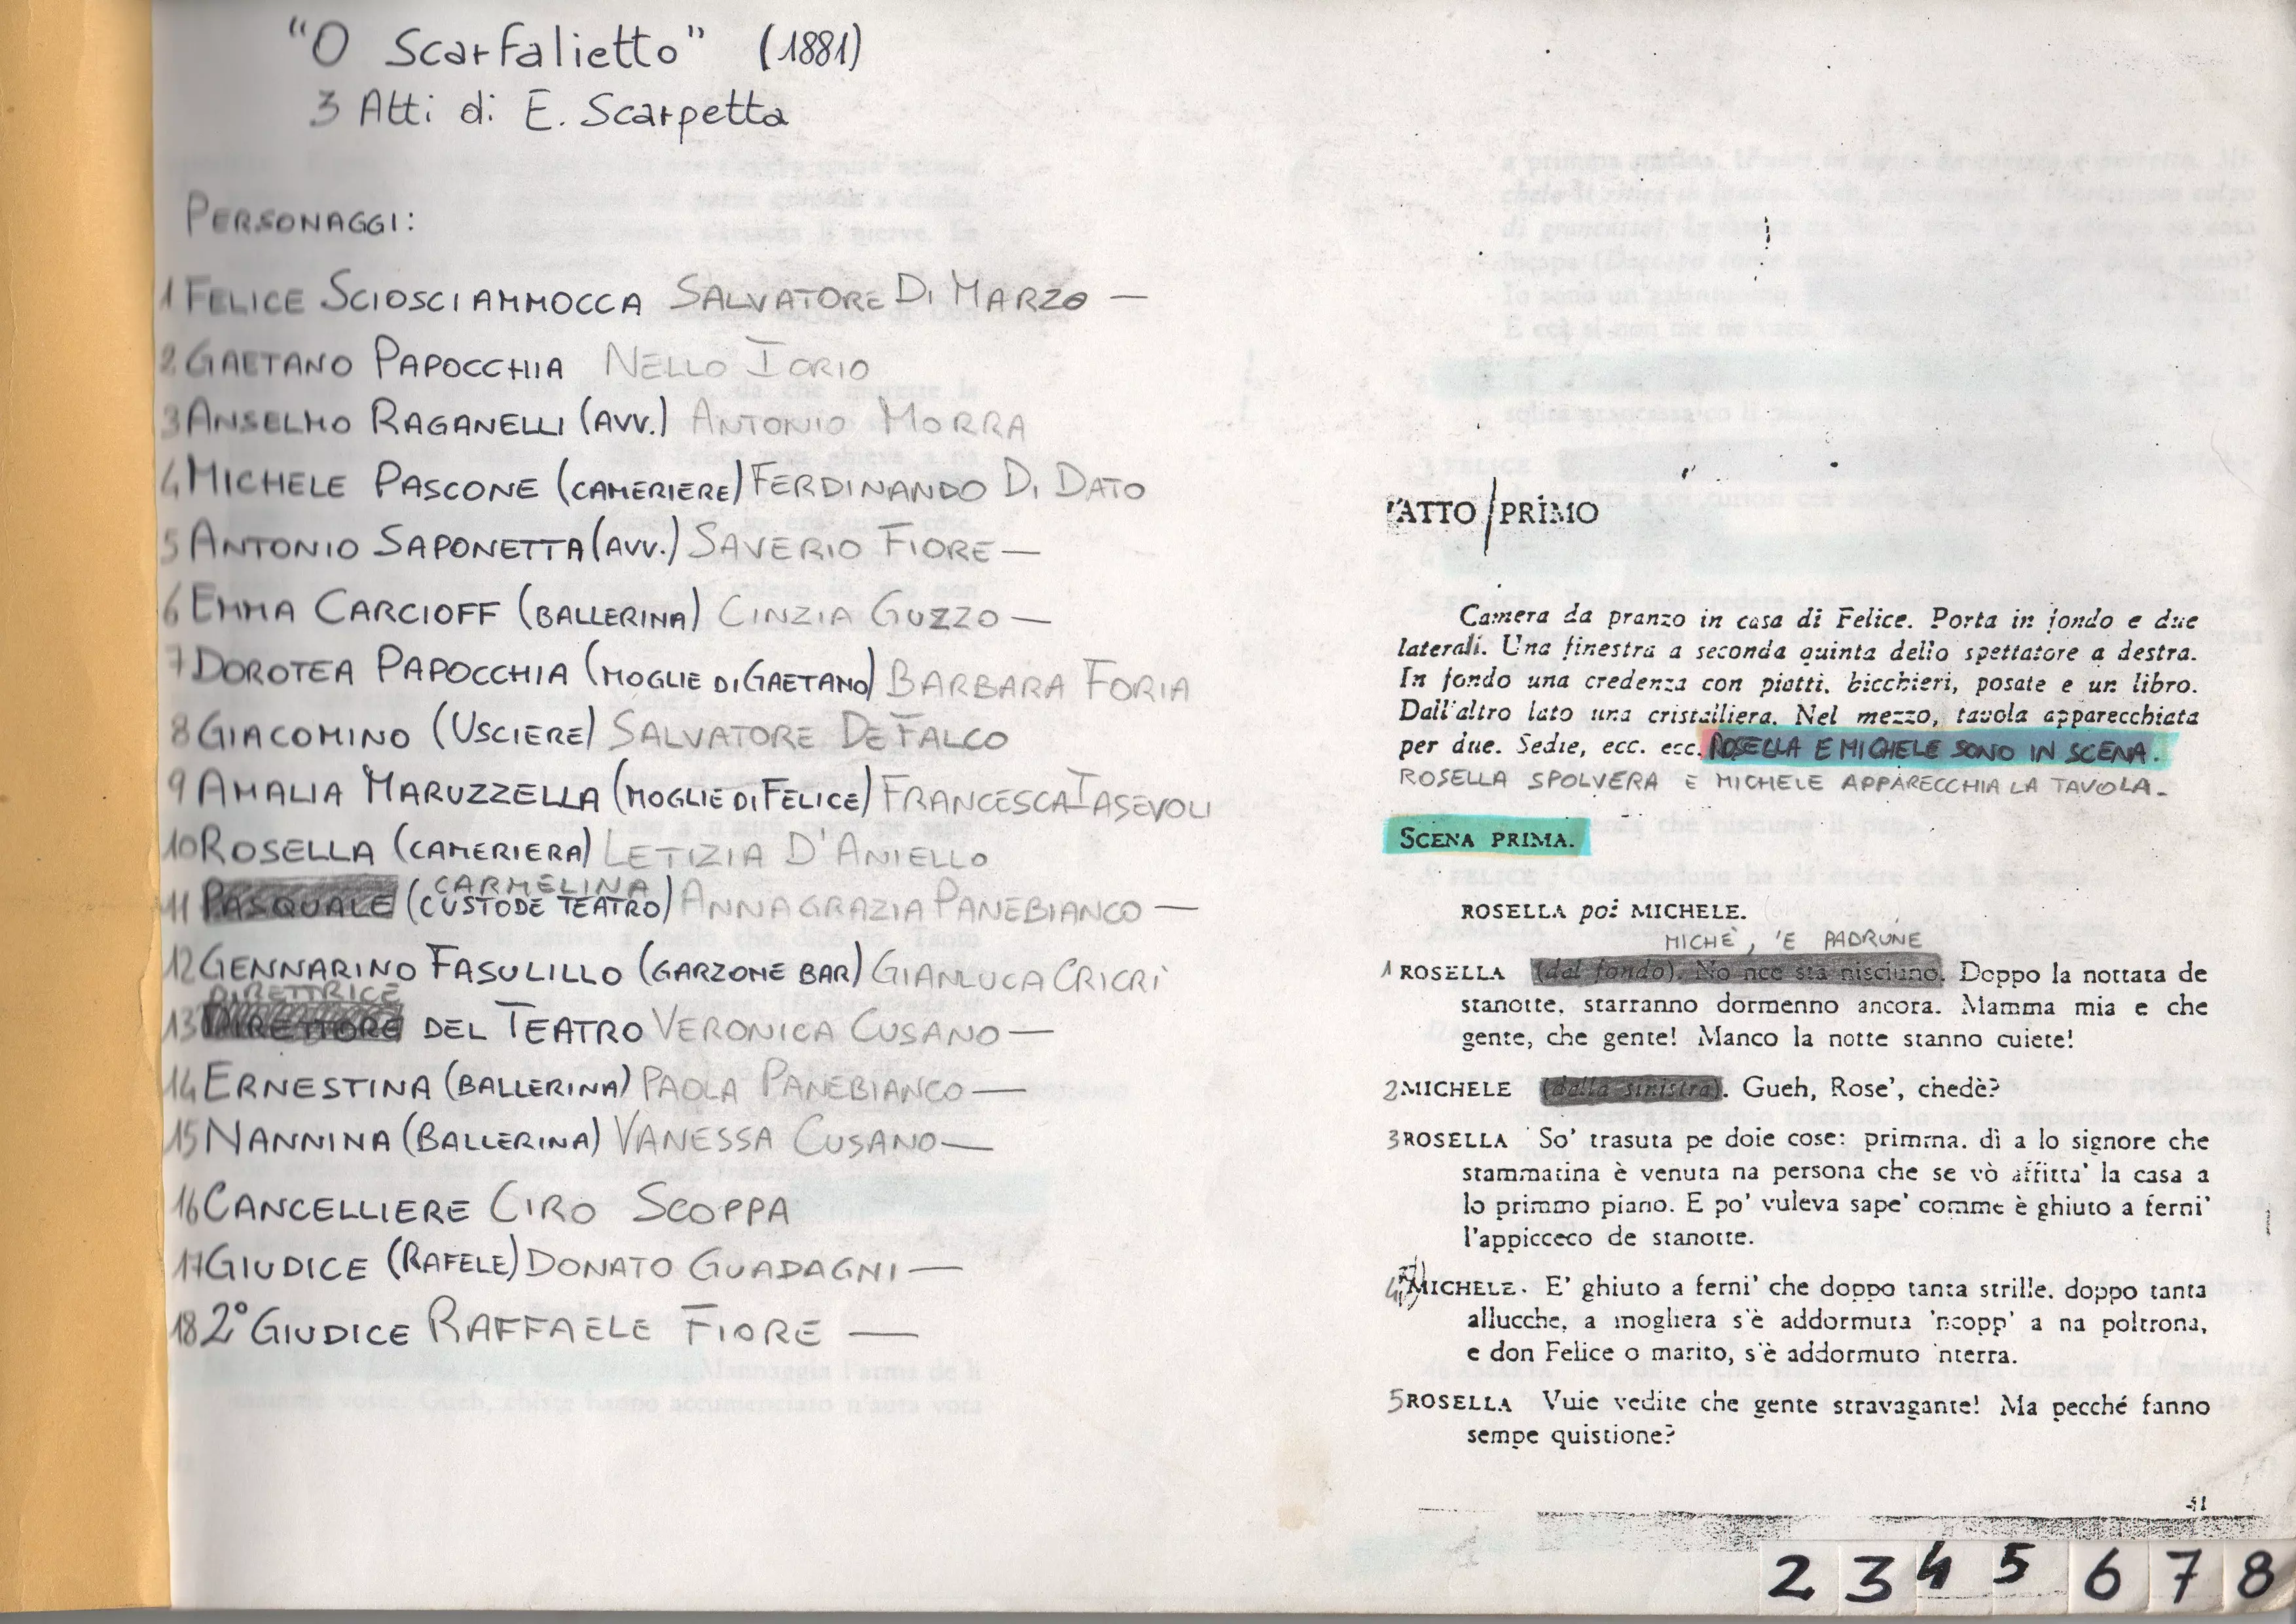 "O Scarfalietto" (1881)
3 Atti di E. Scarpetta
PERSONAGGI:
1 FELICE SCIOSCIAMMOCCA SALVATORE DI MARZO —
2 GAETANO PAPOCCHIA NELLO IORIO
3 ANSELMO RAGANELLI (AVV.) ANTONIO MORRA
4 MICHELE PASCONE (CAMERIERE) FERDINANDO DI DATO
5 ANTONIO SAPONETTA (AVV.) SAVERIO FIORE —
6 EMMA CARCIOFF (BALLERINA) CINZIA GUZZO —
7 DOROTEA PAPOCCHIA (MOGLIE DI GAETANO) BARBARA FORIA
8 GIACOMINO (USCIERE) SALVATORE DE FALCO
9 AMALIA MARUZZELLA (MOGLIE DI FELICE) FRANCESCA IASEVOLI
10 ROSELLA (CAMERIERA) LETIZIA D'ANIELLO
CARMELINA
11 PASQUALE (CUSTODE TEATRO) ANNAGRAZIA PANEBIANCO —
12 GENNARINO FASULILLO (GARZONE BAR) GIANLUCA CRICRÌ
DIRETTRICE
13 DIRETTORE DEL TEATRO VERONICA CUSANO —
14 ERNESTINA (BALLERINA) PAOLA PANEBIANCO —
15 NANNINA (BALLERINA) VANESSA CUSANO —
16 CANCELLIERE CIRO SCOPPA
17 GIUDICE (RAFELE) DONATO GUADAGNI —
18 2° GIUDICE RAFFAELE FIORE —
ATTO PRIMO
Camera da pranzo in casa di Felice. Porta in fondo e due
laterali. Una finestra a seconda quinta dello spettatore a destra.
In fondo una credenza con piatti, bicchieri, posate e un libro.
Dall'altro lato una cristalliera. Nel mezzo, tavola apparecchiata
per due. Sedie, ecc. ecc. ROSELLA E MICHELE SONO IN SCENA.
ROSELLA SPOLVERA E MICHELE APPARECCHIA LA TAVOLA.
SCENA PRIMA.
ROSELLA poi MICHELE.
MICHÈ, 'E PADRUNE
1 ROSELLA (dal fondo). No nce sta nisciuno. Doppo la nottata de
stanotte, starranno dormenno ancora. Mamma mia e che
gente, che gente! Manco la notte stanno cuiete!
2 MICHELE (dalla sinistra). Gueh, Rose', chedè?
3 ROSELLA So' trasuta pe doie cose: primma, dì a lo signore che
stammatina è venuta na persona che se vò affittà' la casa a
lo primmo piano. E po' vuleva sape' comme è ghiuto a ferni'
l'appicceco de stanotte.
4 MICHELE. E' ghiuto a ferni' che doppo tanta strille, doppo tanta
allucche, a mogliera s'è addormuta 'ncopp' a na poltrona,
e don Felice o marito, s'è addormuto 'nterra.
5 ROSELLA Vuie vedite che gente stravagante! Ma pecché fanno
sempe quistione?
2 3 4 5 6 7 8